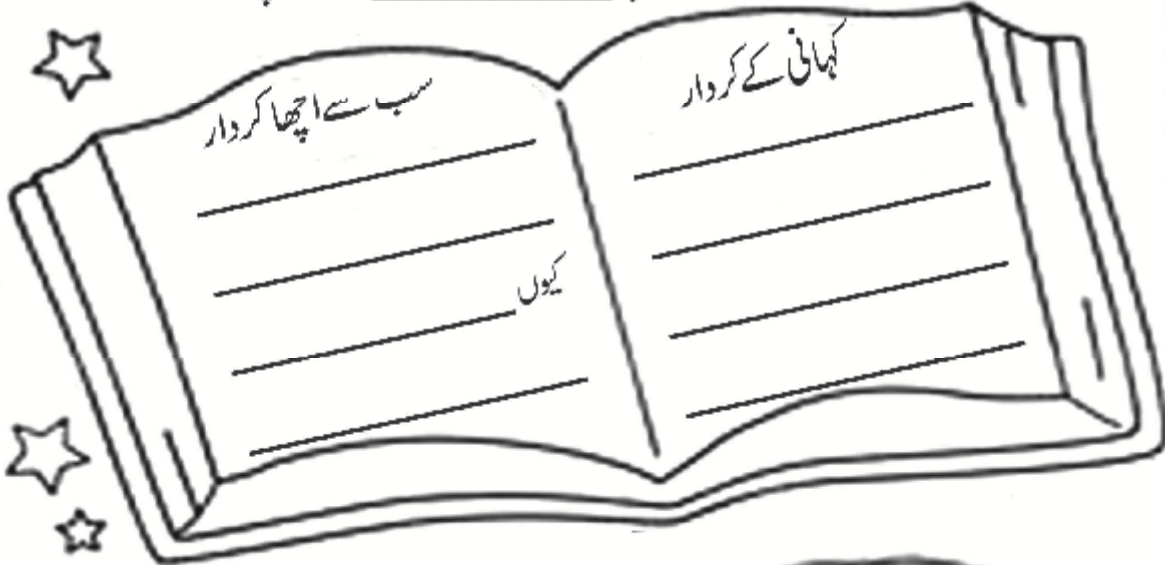 کہانی کے کردار
سب سے اچھا کردار
کیوں